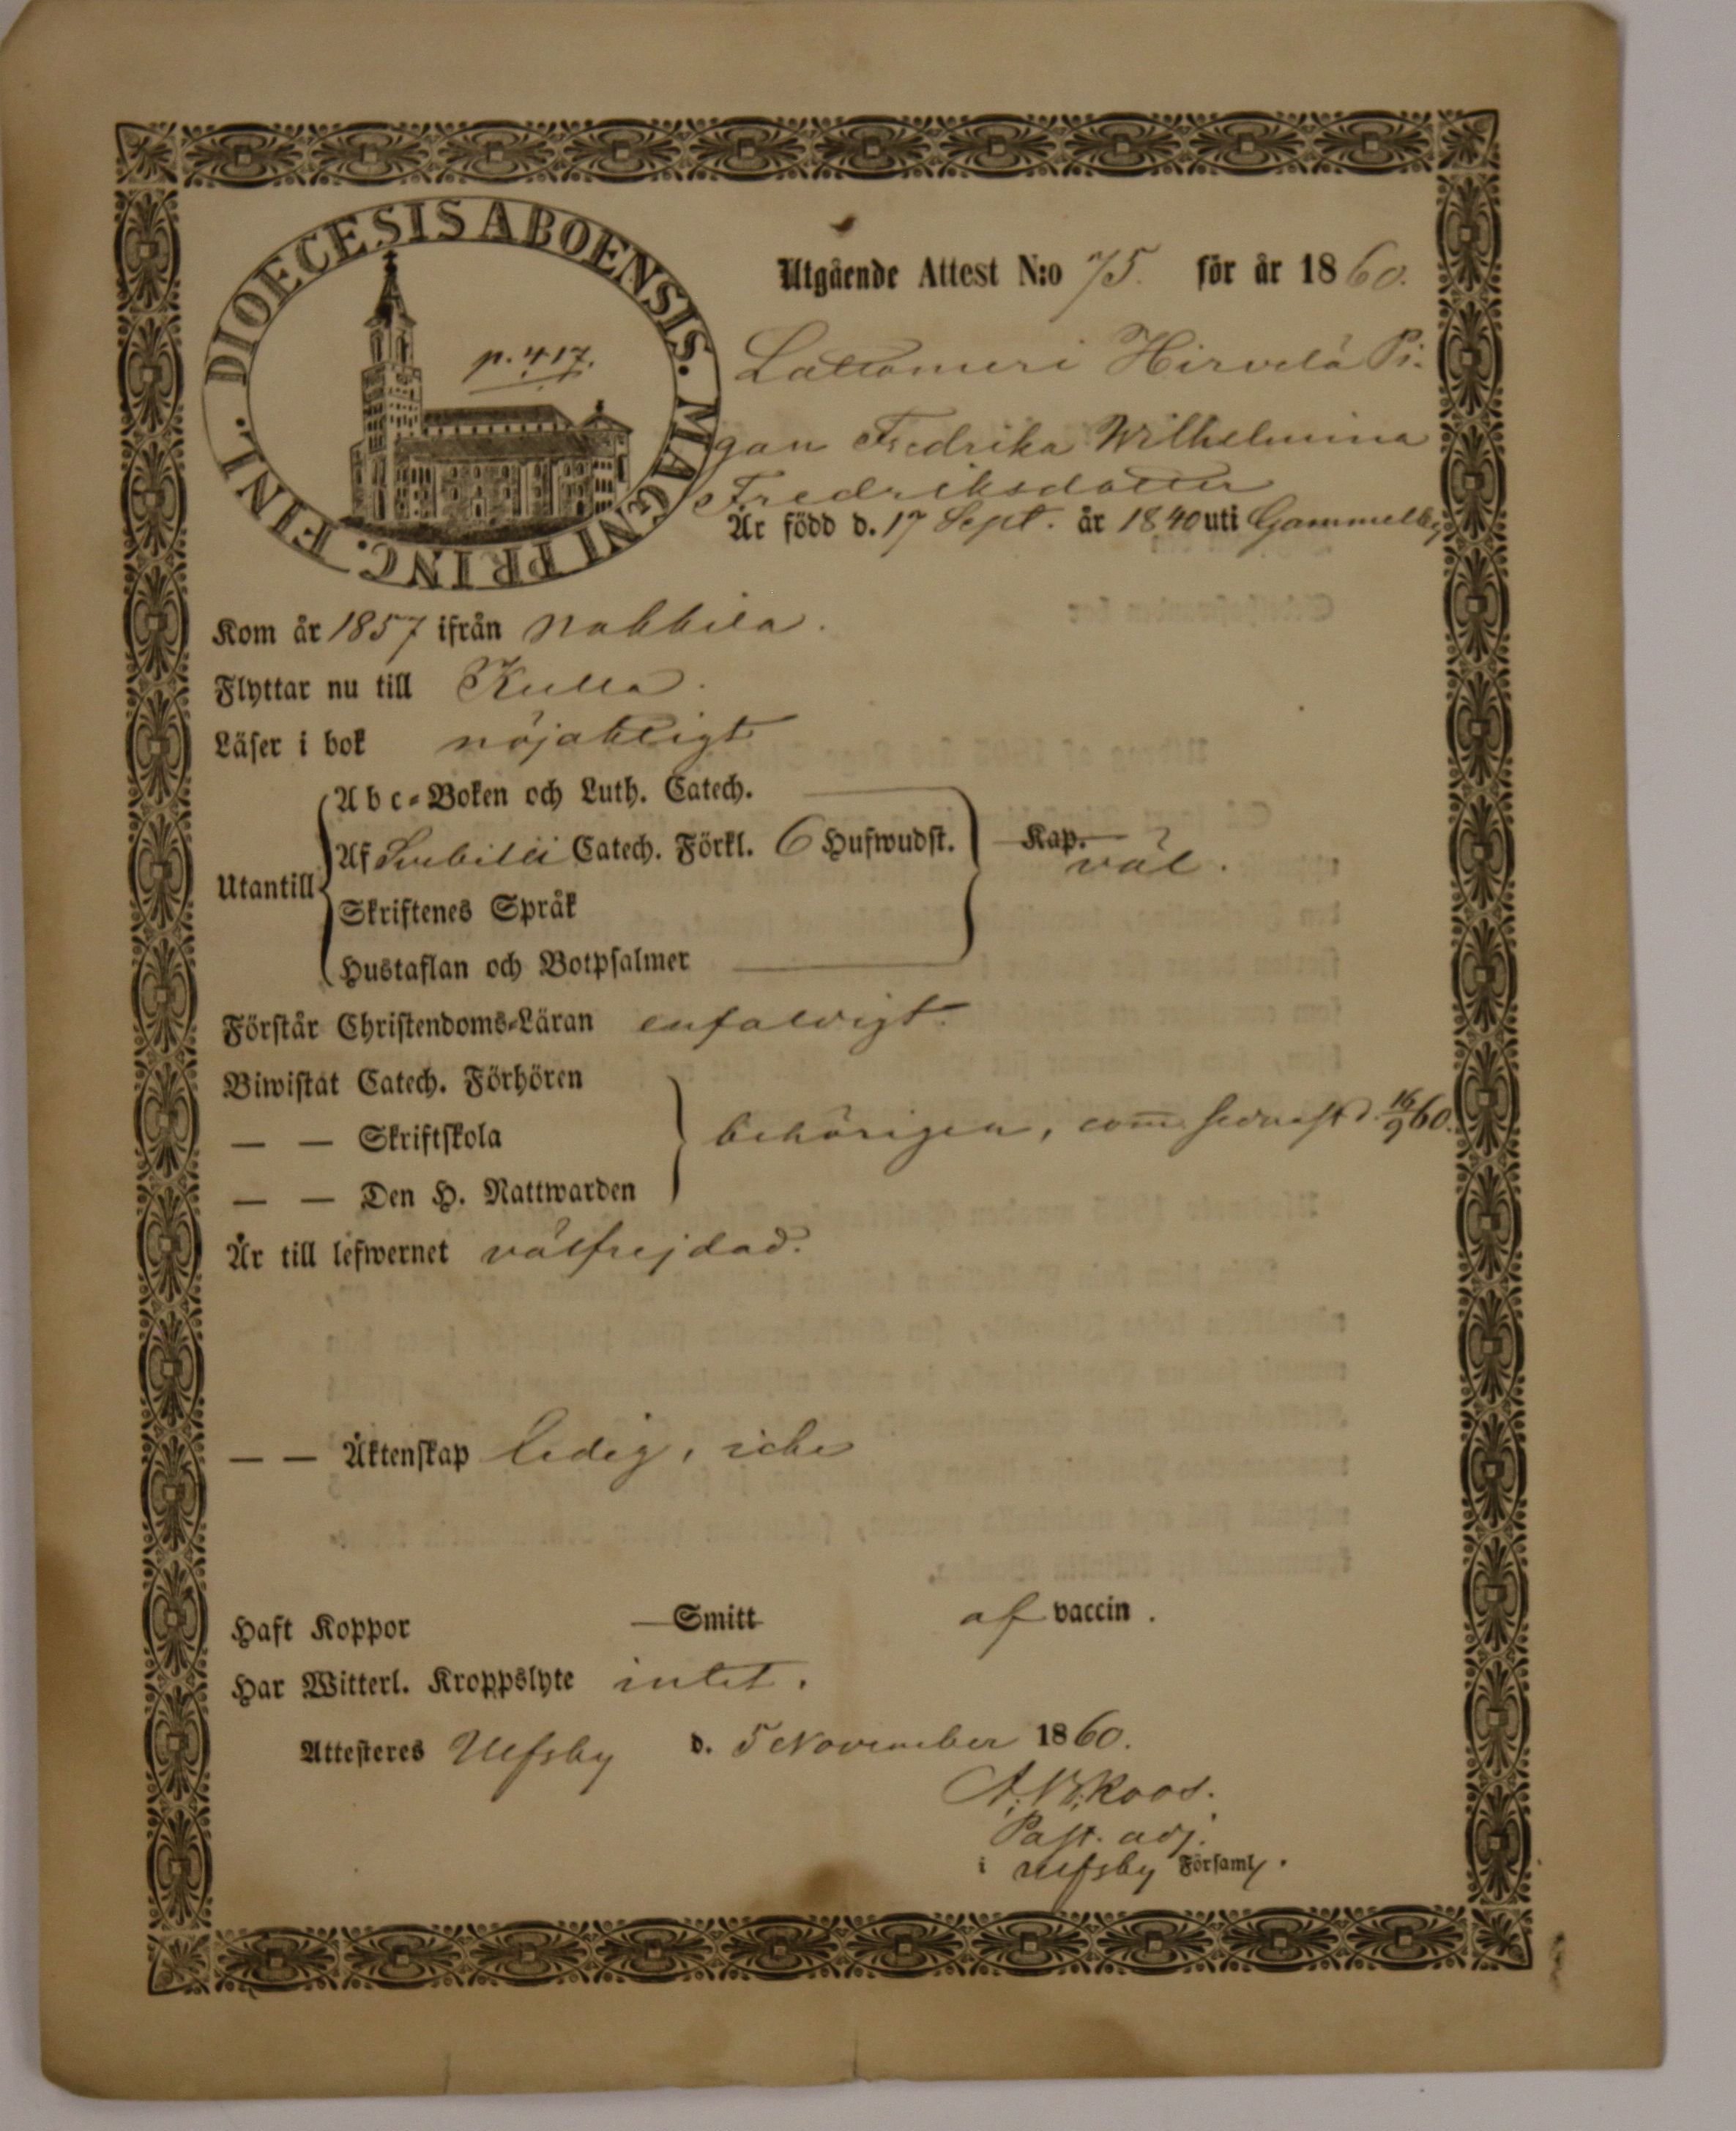 DIOECESIS ABOENSIS. MAGNI PRINC. FINL.
p. 417.
Utgående Attest N:o 75. för år 1860.
Lattomeri Hirvelä Pi-
gan Fredrika Wilhelmina
Fredriksdotter
Är född d. 17 Sept. år 1840 uti Gammelby
Kom år 1857 ifrån Nakkila.
Flyttar nu till Kulla.
Läser i bok nöjaktigt
Utantill
Abc-Boken och Luth. Catech.
Af Svebilii Catech. Förkl. 6 Hufwudst. Kap. väl.
Skriftenes Språk
Hustaflan och Botpsalmer
Förstår Christendoms-Läran enfaldigt.
Biwistat Catech. Förhören
— — Skriftskola behörigen, com̅ sednast d. 16/9 60.
— — Den H. Nattwarden
Är till lefwernet välfrejdad.
— — Äktenskap ledig, icke
Haft Koppor Smitt af vaccin.
Har Witterl. Kroppslyte intet.
Attesteres Ulfsby d. 5 November 1860.
Roos.
Past. adj.
i Ulfsby Församl.